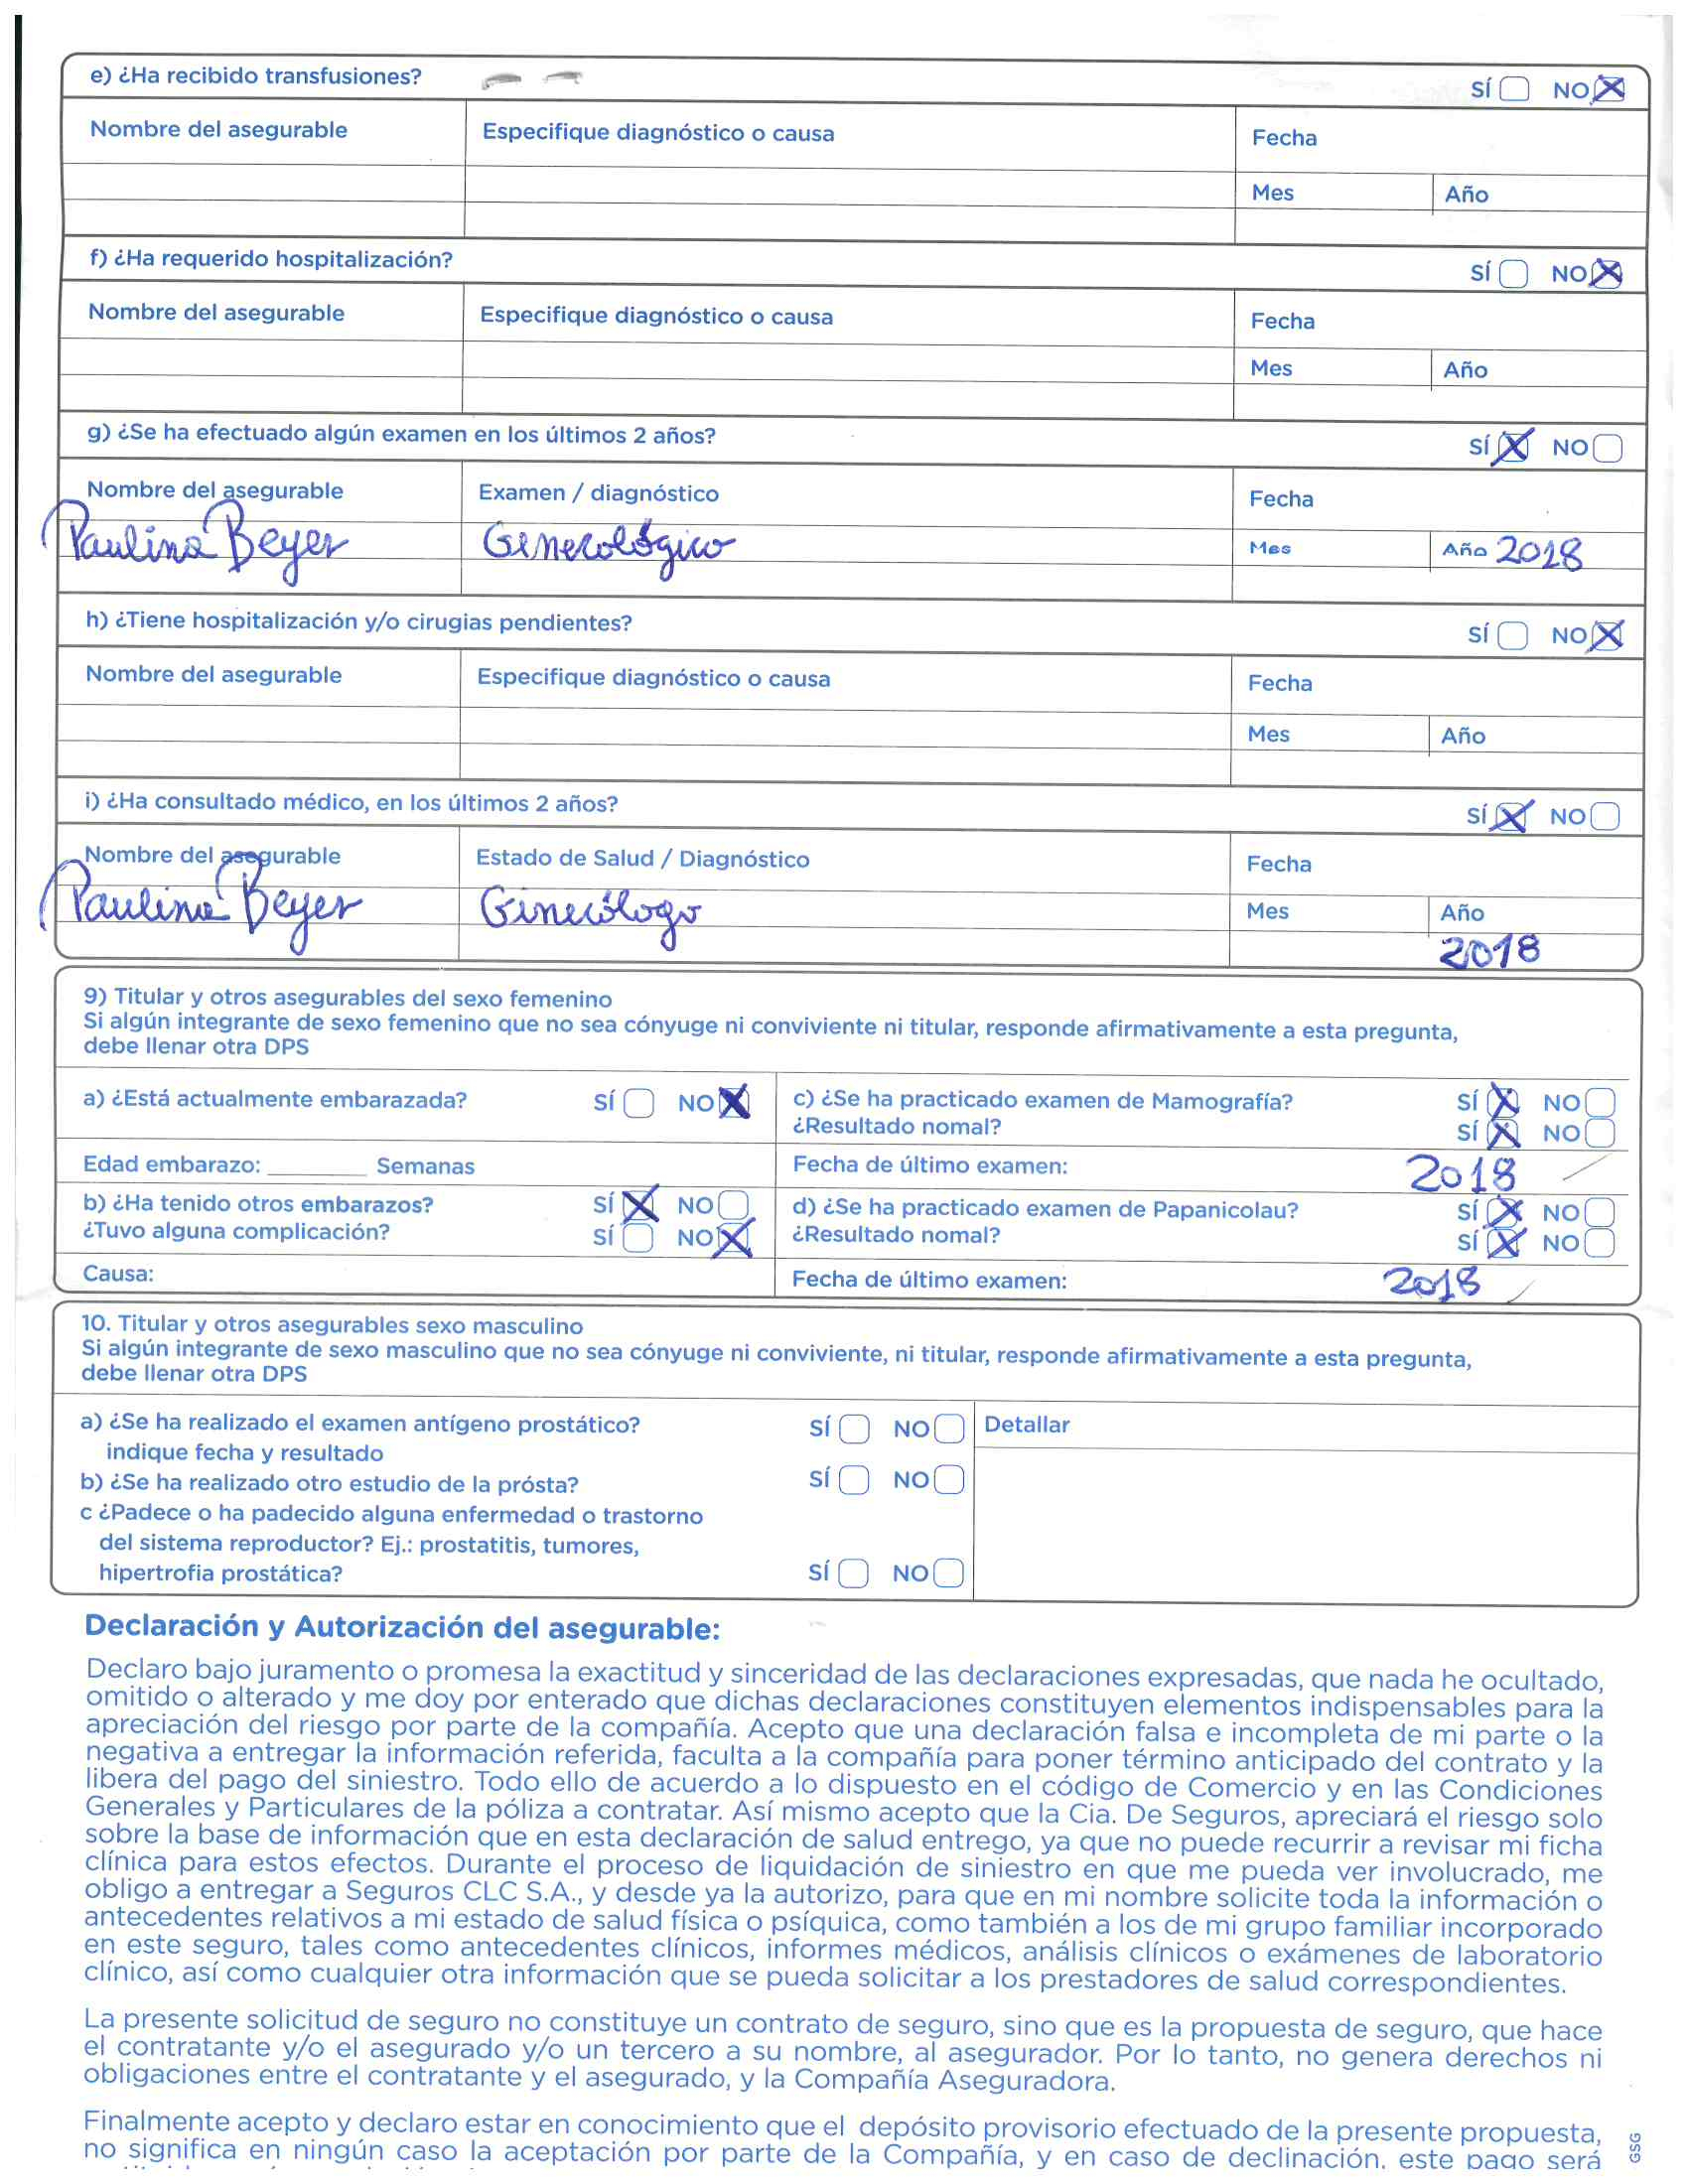 e) ¿Ha recibido transfusiones? SÍ NO
Nombre del asegurable Especifique diagnóstico o causa Fecha
Mes Año
f) ¿Ha requerido hospitalización? SÍ NO
Nombre del asegurable Especifique diagnóstico o causa Fecha
Mes Año
g) ¿Se ha efectuado algún examen en los últimos 2 años? SÍ NO
Nombre del asegurable Examen / diagnóstico Fecha
Paulina Beyer Ginecológico Mes Año 2018
h) ¿Tiene hospitalización y/o cirugias pendientes? SÍ NO
Nombre del asegurable Especifique diagnóstico o causa Fecha
Mes Año
i) ¿Ha consultado médico, en los últimos 2 años? SÍ NO
Nombre del asegurable Estado de Salud / Diagnóstico Fecha
Paulina Beyer Ginecólogo Mes Año
2018
9) Titular y otros asegurables del sexo femenino
Si algún integrante de sexo femenino que no sea cónyuge ni conviviente ni titular, responde afirmativamente a esta pregunta,
debe llenar otra DPS
a) ¿Está actualmente embarazada? SÍ NO c) ¿Se ha practicado examen de Mamografía? SÍ NO
¿Resultado nomal? SÍ NO
Edad embarazo: ________ Semanas Fecha de último examen: 2018
b) ¿Ha tenido otros embarazos? SÍ NO d) ¿Se ha practicado examen de Papanicolau? SÍ NO
¿Tuvo alguna complicación? SÍ NO ¿Resultado nomal? SÍ NO
Causa: Fecha de último examen: 2018
10. Titular y otros asegurables sexo masculino
Si algún integrante de sexo masculino que no sea cónyuge ni conviviente, ni titular, responde afirmativamente a esta pregunta,
debe llenar otra DPS
a) ¿Se ha realizado el examen antígeno prostático? SÍ NO Detallar
indique fecha y resultado
b) ¿Se ha realizado otro estudio de la prósta? SÍ NO
c ¿Padece o ha padecido alguna enfermedad o trastorno
del sistema reproductor? Ej.: prostatitis, tumores,
hipertrofia prostática? SÍ NO
Declaración y Autorización del asegurable:
Declaro bajo juramento o promesa la exactitud y sinceridad de las declaraciones expresadas, que nada he ocultado,
omitido o alterado y me doy por enterado que dichas declaraciones constituyen elementos indispensables para la
apreciación del riesgo por parte de la compañía. Acepto que una declaración falsa e incompleta de mi parte o la
negativa a entregar la información referida, faculta a la compañía para poner término anticipado del contrato y la
libera del pago del siniestro. Todo ello de acuerdo a lo dispuesto en el código de Comercio y en las Condiciones
Generales y Particulares de la póliza a contratar. Así mismo acepto que la Cia. De Seguros, apreciará el riesgo solo
sobre la base de información que en esta declaración de salud entrego, ya que no puede recurrir a revisar mi ficha
clínica para estos efectos. Durante el proceso de liquidación de siniestro en que me pueda ver involucrado, me
obligo a entregar a Seguros CLC S.A., y desde ya la autorizo, para que en mi nombre solicite toda la información o
antecedentes relativos a mi estado de salud física o psíquica, como también a los de mi grupo familiar incorporado
en este seguro, tales como antecedentes clínicos, informes médicos, análisis clínicos o exámenes de laboratorio
clínico, así como cualquier otra información que se pueda solicitar a los prestadores de salud correspondientes.
La presente solicitud de seguro no constituye un contrato de seguro, sino que es la propuesta de seguro, que hace
el contratante y/o el asegurado y/o un tercero a su nombre, al asegurador. Por lo tanto, no genera derechos ni
obligaciones entre el contratante y el asegurado, y la Compañía Aseguradora.
Finalmente acepto y declaro estar en conocimiento que el depósito provisorio efectuado de la presente propuesta,
no significa en ningún caso la aceptación por parte de la Compañía, y en caso de declinación, este pago será
GSG